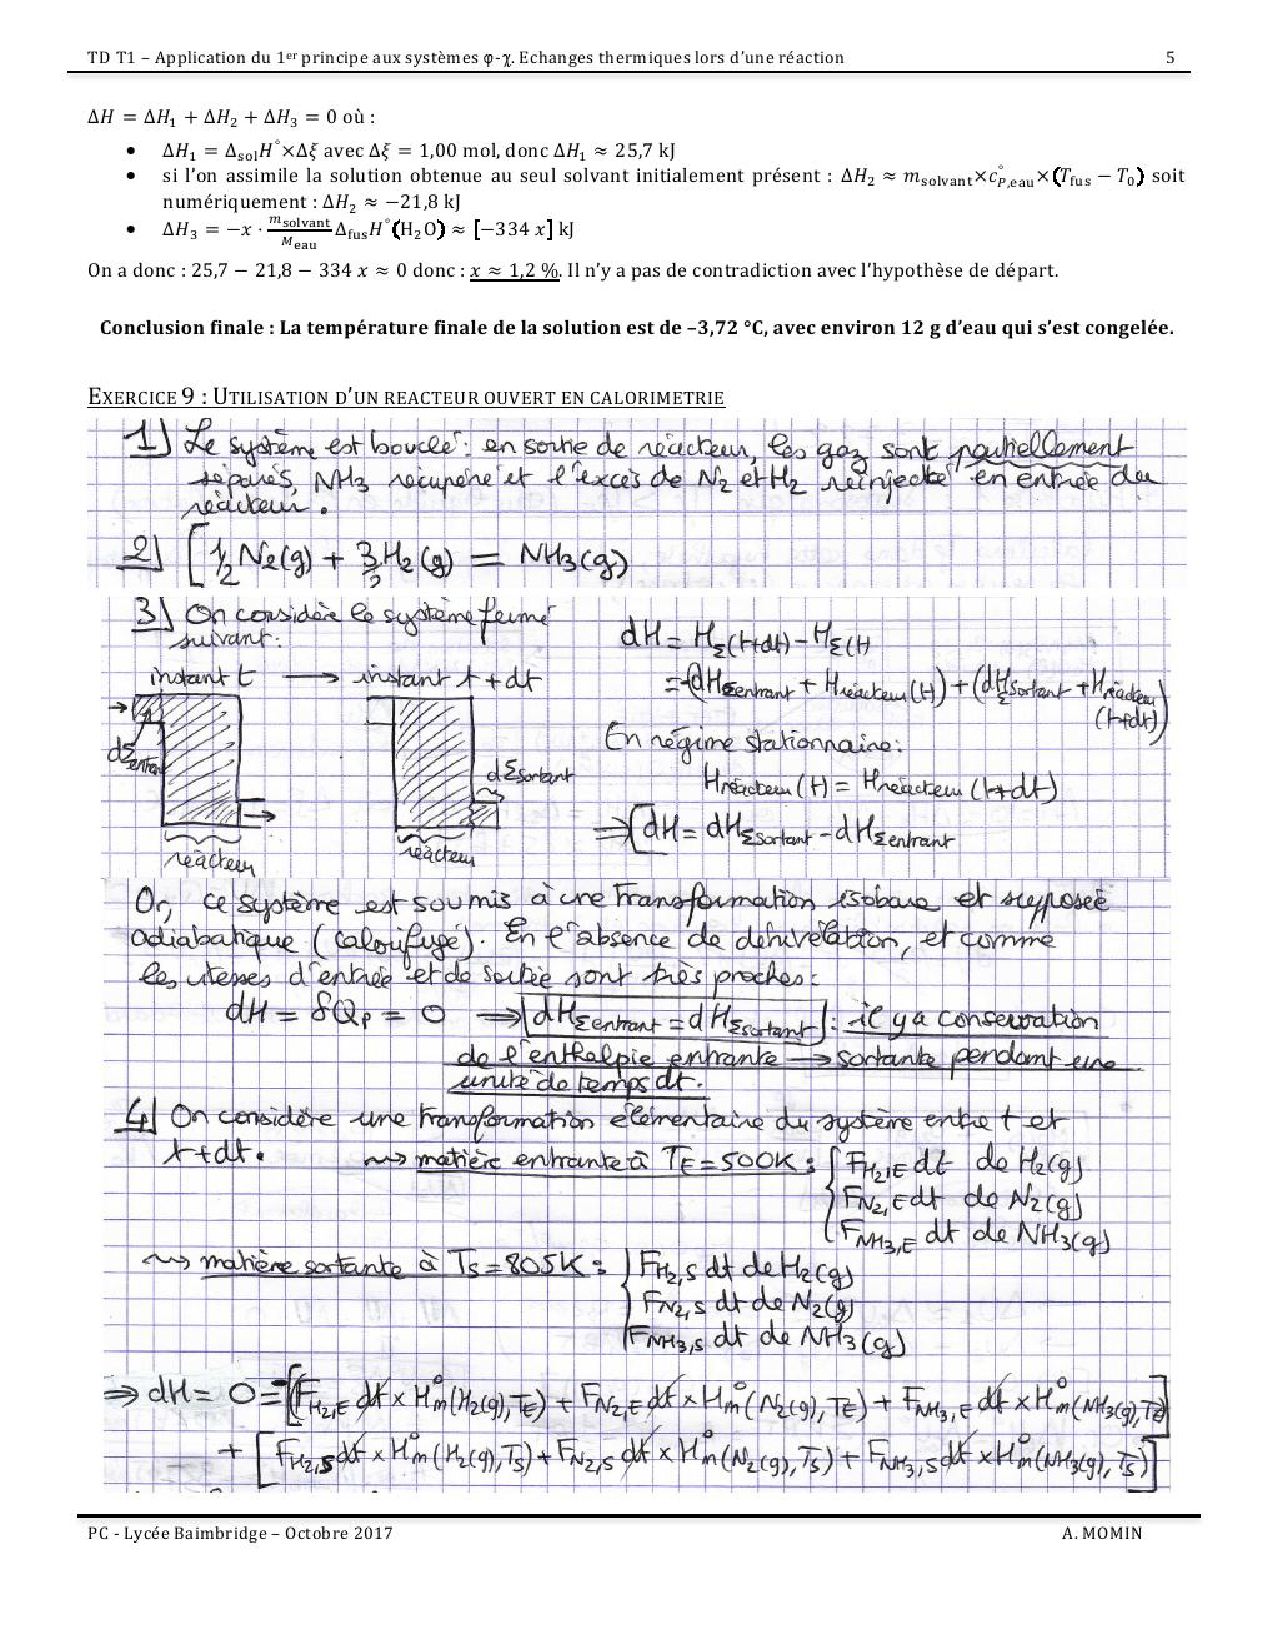 TD T1 – Application du 1er principe aux systèmes φ-χ. Echanges thermiques lors d'une réaction 5
ΔH = ΔH₁ + ΔH₂ + ΔH₃ = 0 où :
• ΔH₁ = ΔsolH°×Δξ avec Δξ = 1,00 mol, donc ΔH₁ ≈ 25,7 kJ
• si l'on assimile la solution obtenue au seul solvant initialement présent : ΔH₂ ≈ msolvant×c°P,eau×(Tfus − T₀) soit
numériquement : ΔH₂ ≈ −21,8 kJ
• ΔH₃ = −x · msolvant/Meau ΔfusH°(H₂O) ≈ [−334 x] kJ
On a donc : 25,7 − 21,8 − 334 x ≈ 0 donc : x ≈ 1,2 %. Il n'y a pas de contradiction avec l'hypothèse de départ.
Conclusion finale : La température finale de la solution est de –3,72 °C, avec environ 12 g d'eau qui s'est congelée.
EXERCICE 9 : UTILISATION D'UN REACTEUR OUVERT EN CALORIMETRIE
1) Le système est bouclé : en sortie de réacteur, les gaz sont partiellement
séparés, NH3 récupéré et l'excès de N2 et H2 réinjecté en entrée du
réacteur.
2) [ 1/2 N2(g) + 3/2 H2(g) = NH3(g)
3) On considère le système fermé
suivant :
instant t → instant t + dt
dΣentrant
dΣsortant
réacteur réacteur
dH = HΣ(t+dt) − HΣ(t)
= −(dHΣentrant + Hréacteur(t)) + (dHΣsortant + Hréacteur
(t+dt))
En régime stationnaire :
Hréacteur(t) = Hréacteur(t+dt)
⇒ [dH = dHΣsortant − dHΣentrant
Or, ce système est soumis à une transformation isobare et supposée
adiabatique (calorifugé). En l'absence de dénivelation, et comme
les vitesses d'entrée et de sortie sont très proches :
dH = δQp = 0 ⇒ [dHΣentrant = dHΣsortant] : il y a conservation
de l'enthalpie entrante → sortante pendant une
unité de temps dt.
4) On considère une transformation élémentaire du système entre t et
t+dt. ⇝ matière entrante à TE = 500K : { FH2,E dt de H2(g)
FN2,E dt de N2(g)
FNH3,E dt de NH3(g)
⇝ matière sortante à TS = 805K : { FH2,S dt de H2(g)
FN2,S dt de N2(g)
FNH3,S dt de NH3(g)
⇒ dH = 0 = −[FH2,E dt × H°m(H2(g),TE) + FN2,E dt × H°m(N2(g),TE) + FNH3,E dt × H°m(NH3(g),TE)]
+ [FH2,S dt × H°m(H2(g),TS) + FN2,S dt × H°m(N2(g),TS) + FNH3,S dt × H°m(NH3(g),TS)]
PC - Lycée Baimbridge – Octobre 2017 A. MOMIN